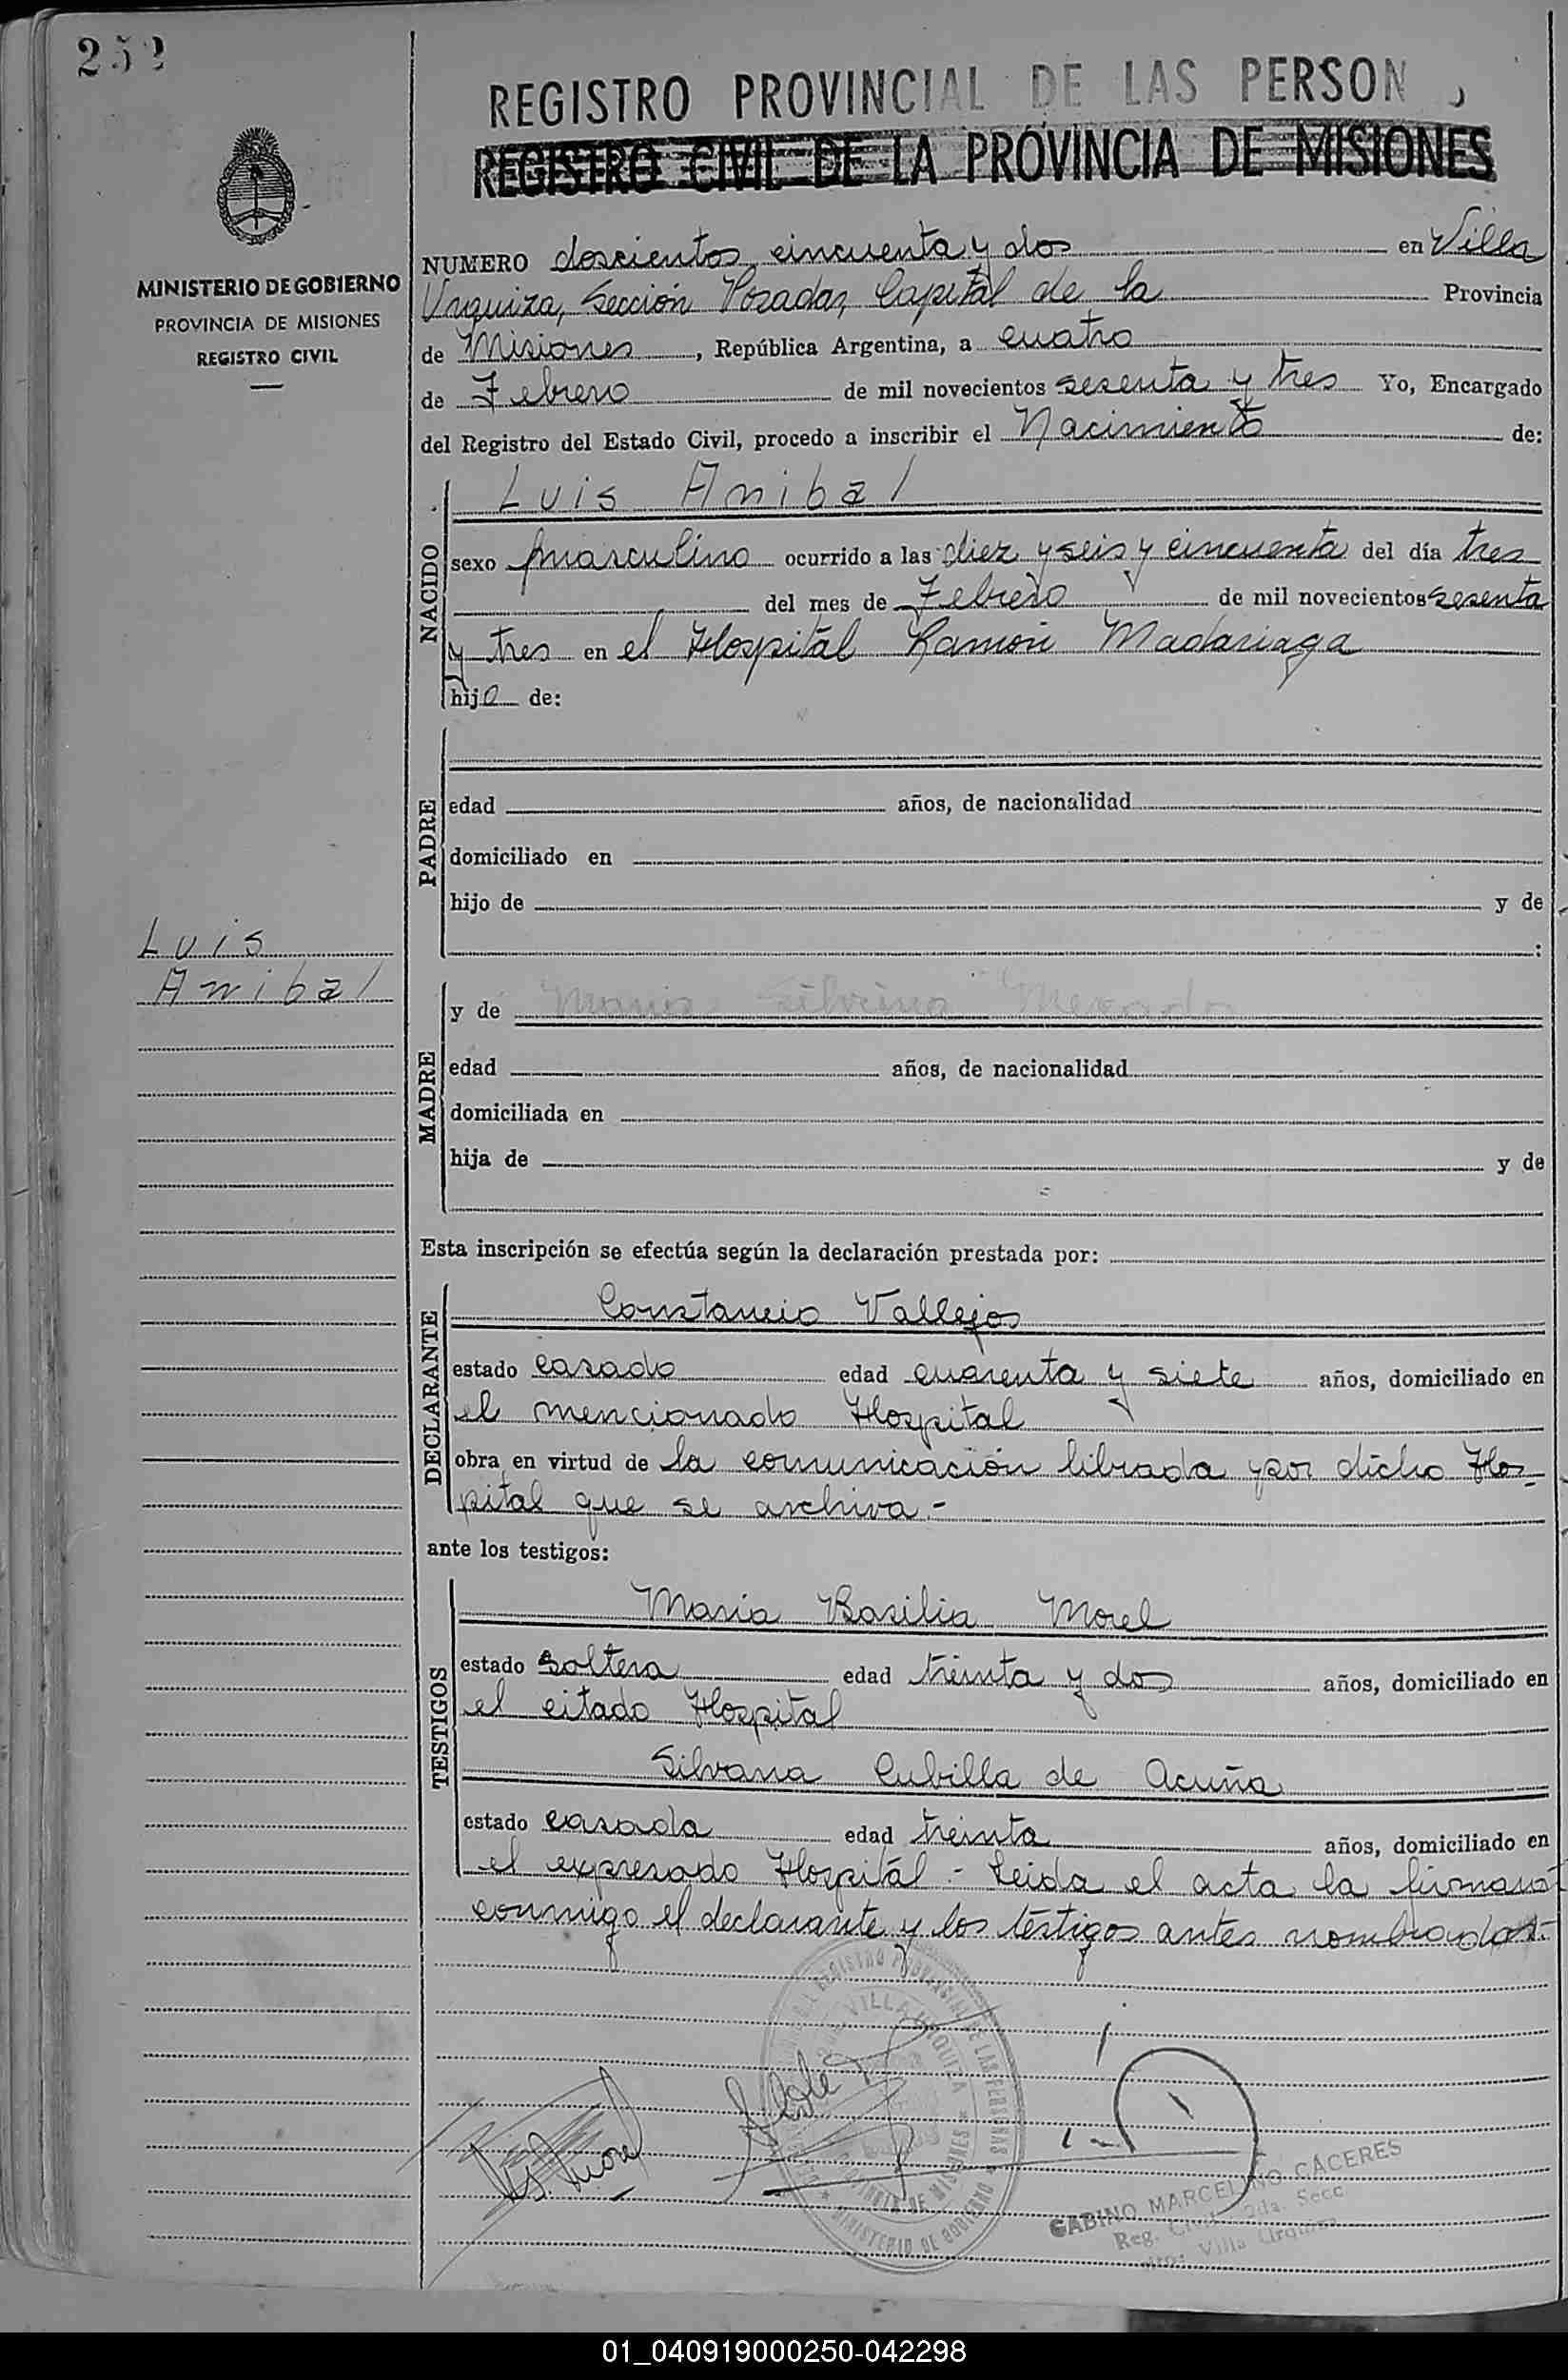 252
REGISTRO PROVINCIAL DE LAS PERSON
REGISTRO CIVIL DE LA PROVINCIA DE MISIONES
MINISTERIO DE GOBIERNO
PROVINCIA DE MISIONES
REGISTRO CIVIL
NUMERO doscientos cincuenta y dos en Villa
Urquiza, Sección Posadas, Capital de la Provincia
de Misiones, República Argentina, a cuatro
de Febrero de mil novecientos sesenta y tres Yo, Encargado
del Registro del Estado Civil, procedo a inscribir el Nacimiento de:
NACIDO
Luis Anibal
sexo masculino ocurrido a las diez y seis y cincuenta del día tres
del mes de Febrero de mil novecientos sesenta
y tres en el Hospital Ramón Madariaga
hijo de:
PADRE
edad años, de nacionalidad
domiciliado en
hijo de y de
:
Luis
Anibal
MADRE
y de Maria Silvina
edad años, de nacionalidad
domiciliada en
hija de y de
Esta inscripción se efectúa según la declaración prestada por:
DECLARANTE
Constancio Vallejos
estado casado edad cuarenta y siete años, domiciliado en
el mencionado Hospital
obra en virtud de la comunicación librada por dicho Hos-
pital que se archiva.-
ante los testigos:
TESTIGOS
Maria Basilia Morel
estado soltera edad treinta y dos años, domiciliado en
el citado Hospital
Silvana Cubilla de Acuña
estado casada edad treinta años, domiciliado en
el expresado Hospital.- Leida el acta la firman
conmigo el declarante y los testigos antes nombrados.-
GABINO MARCELINO CACERES
Reg. Civil 2da. Secc
Villa Urquiza
01_040919000250-042298